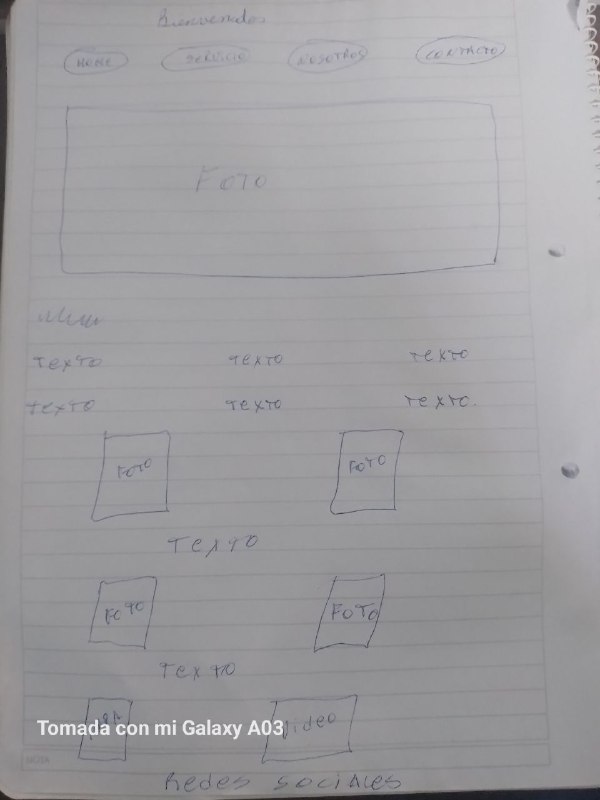 Bienvenidos
HOME SERVICIO NOSOTROS CONTACTO
FOTO
TEXTO TEXTO TEXTO
TEXTO TEXTO TEXTO.
FOTO FOTO
TEXTO
FOTO FOTO
TEXTO
Video
Tomada con mi Galaxy A03
Redes sociales